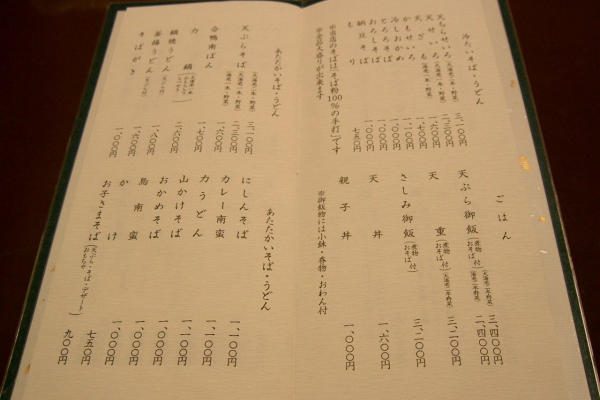 冷たいそば・うどん
天ちらせいろ(大海老二本・野菜) 三、一〇〇円
天せいろ 二、二〇〇円
天ざる(海老一本・野菜) 一、六〇〇円
かもせいろ 一、七〇〇円
冷しおかめ 一、一〇〇円
おろしそば 一、〇〇〇円
とろろそば 一、〇〇〇円
納豆そば 一、〇〇〇円
もり 七五〇円
※当店のそばはそば粉100%の手打です
※全品大盛りが出来ます
ごはん
天ぷら御飯(煮物付おそば)(大海老二本野菜) 三、四〇〇円
(海老一本野菜) 二、四〇〇円
天重(煮物付おそば)(大海老二本野菜) 三、二〇〇円
さしみ御飯(煮物付おそば) 三、二〇〇円
天丼 一、六〇〇円
親子丼 一、〇〇〇円
※御飯物には小鉢・香物・おわん付
あたたかいそば・うどん
天ぷらそば(大海老二本・野菜) 三、一〇〇円
(大海老一本・野菜) 二、三〇〇円
(海老一本・野菜) 一、六〇〇円
合鴨南ばん 一、七〇〇円
力鍋 二、六〇〇円
鍋焼うどん 一、八〇〇円
釜揚うどん 一、六〇〇円
そばがき 一、〇〇〇円
あたたかいそば・うどん
にしんそば 一、一〇〇円
カレー南蛮 一、一〇〇円
力うどん 一、一〇〇円
山かけそば 一、〇〇〇円
おかめそば 一、〇〇〇円
鳥南蛮 一、〇〇〇円
かけ 七五〇円
お子さまそば(天ぷら・そば・デザートおもちゃ) 九〇〇円